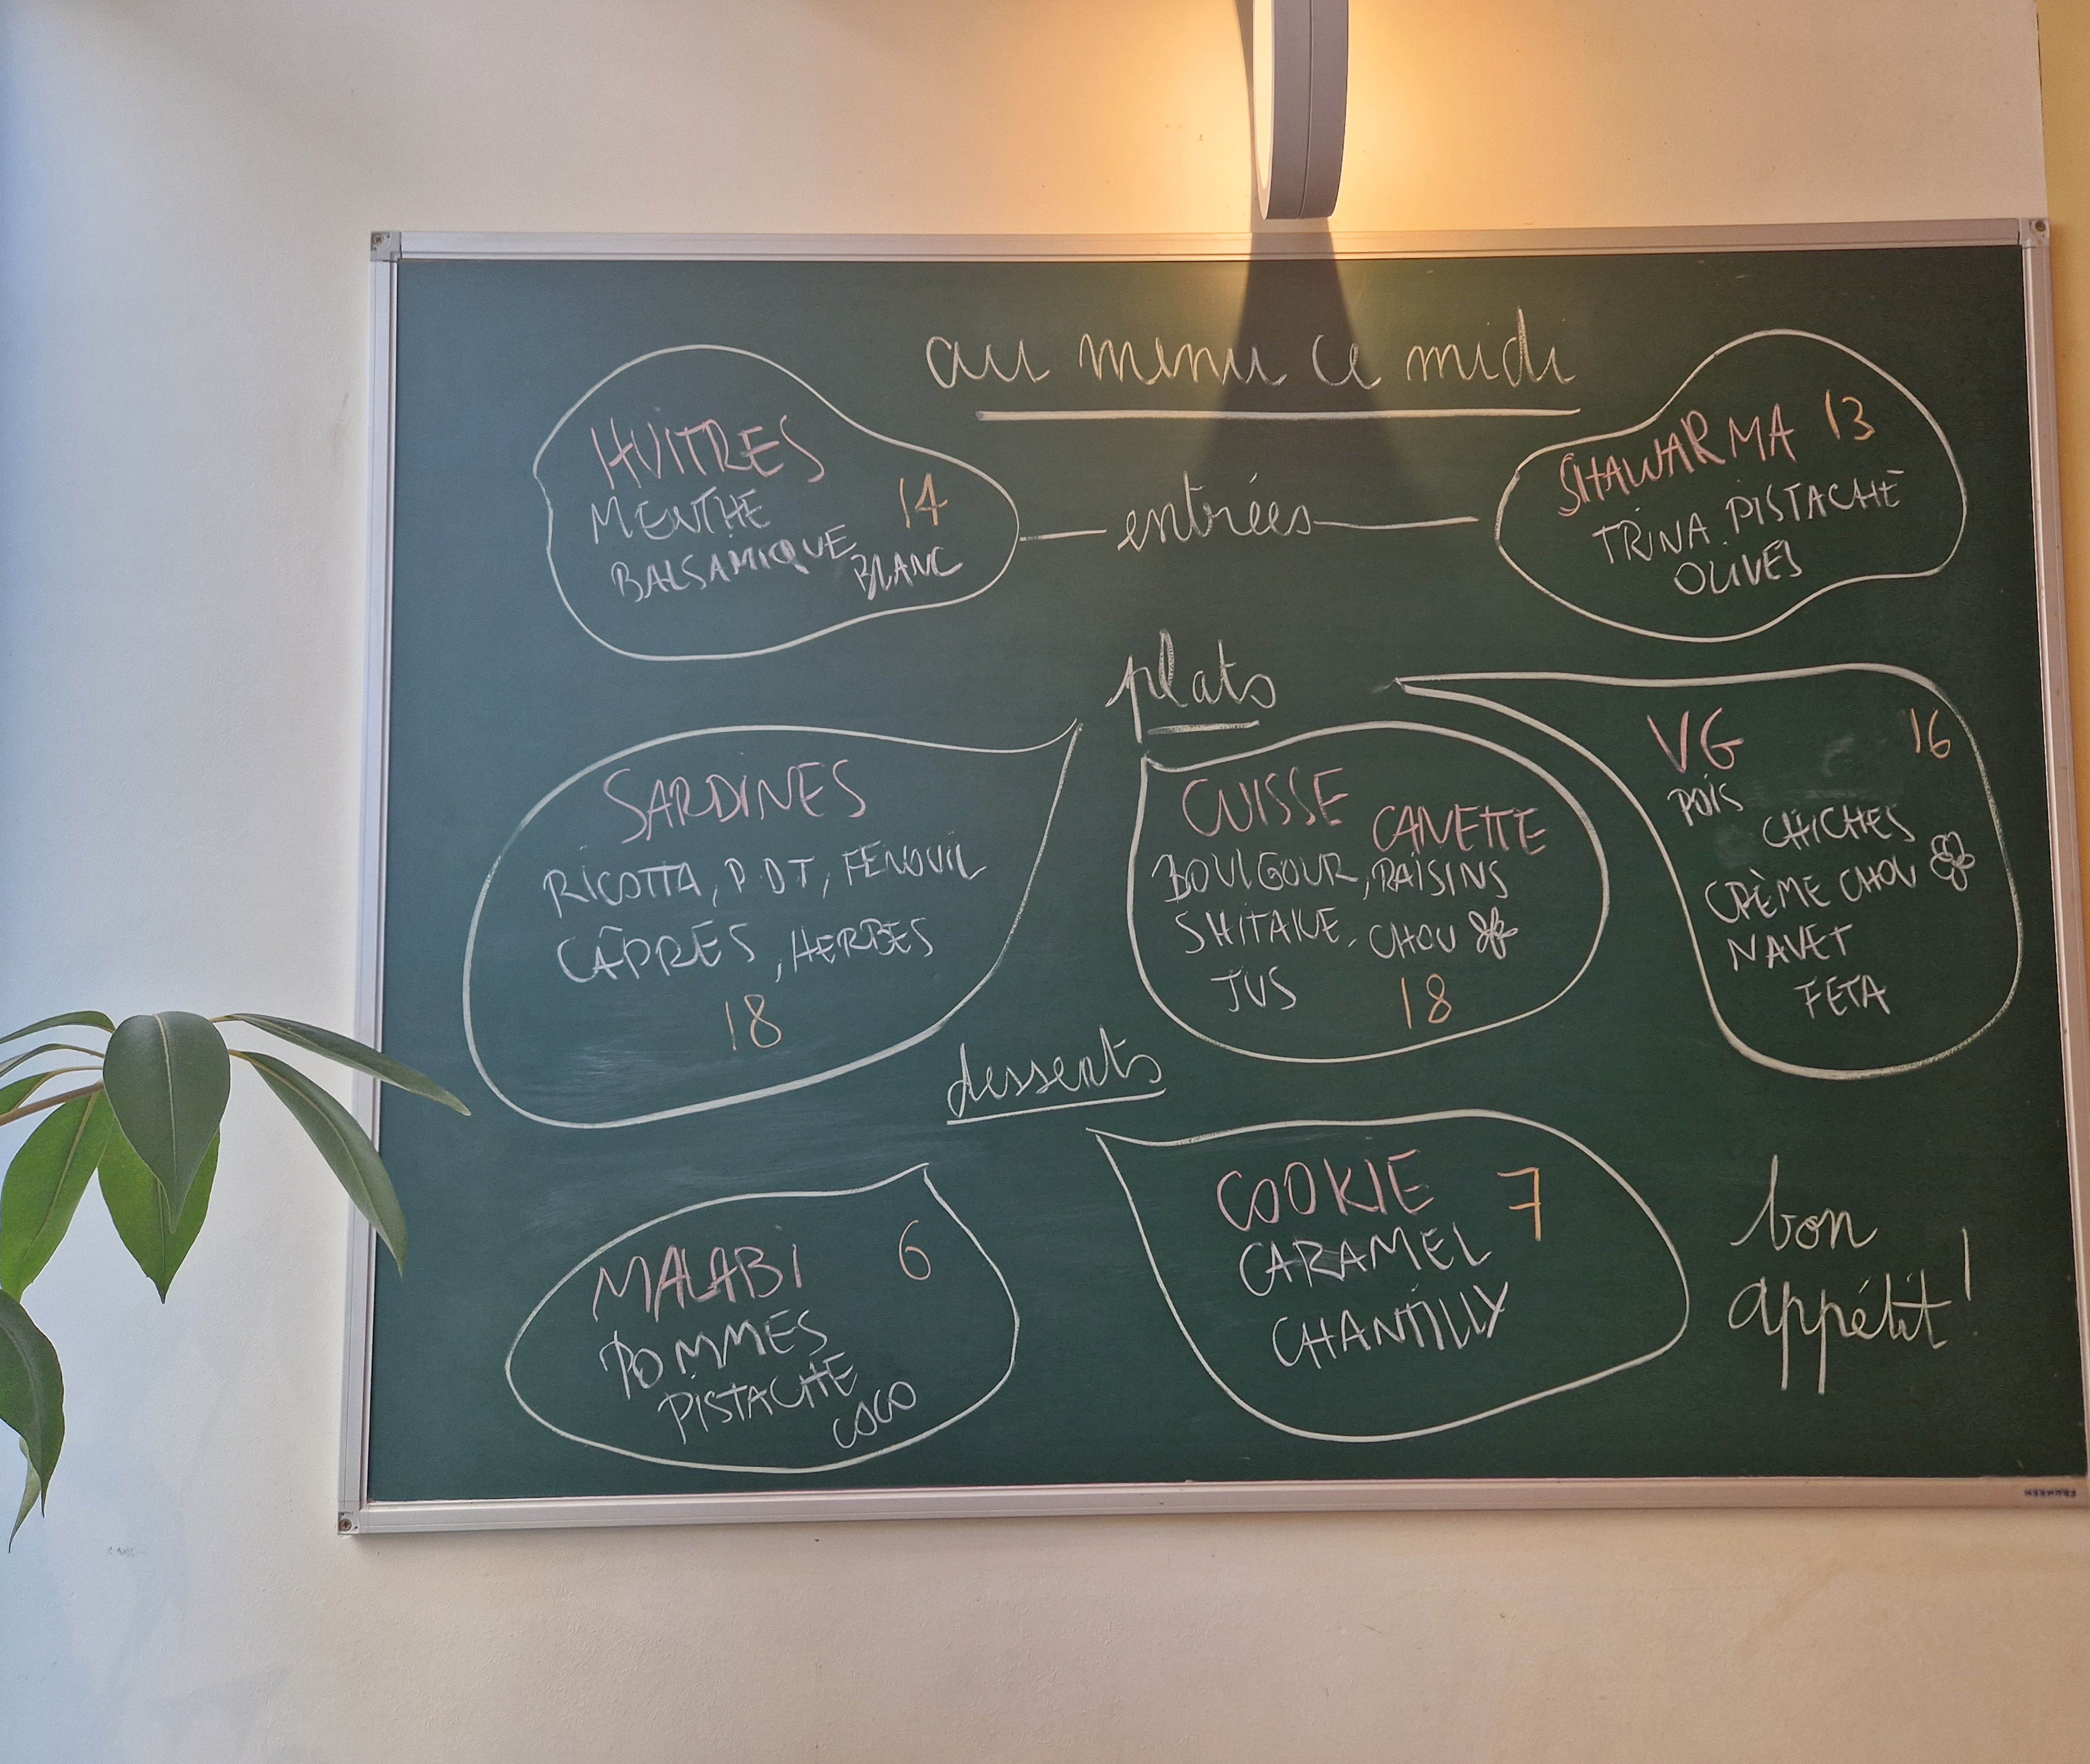 au menu ce midi
entrées
HUITRES
MENTHE 14
BALSAMIQUE BLANC
SHAWARMA 13
TRINA PISTACHE
OLIVES
plats
SARDINES
RICOTTA, P.DT, FENOUIL
CÂPRES, HERBES
18
CUISSE CANETTE
BOULGOUR, RAISINS
SHITAKE, CHOU
JUS 18
VG 16
POIS
CHICHES
CRÈME CHOU
NAVET
FETA
desserts
MALABI 6
POMMES
PISTACHE
COCO
COOKIE 7
CARAMEL
CHANTILLY
bon
appétit!